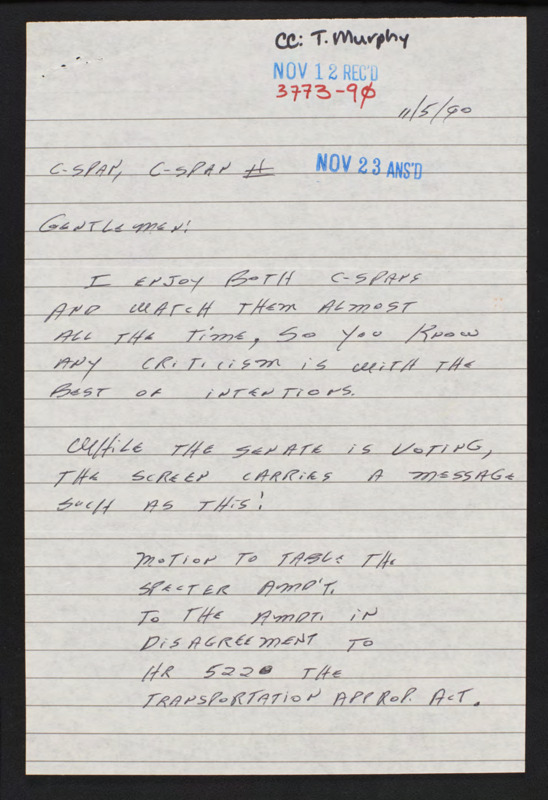 CC: T. Murphy
NOV 12 REC'D
3773-90
11/5/90
C-SPAN, C-SPAN II
NOV 23 ANS'D
GENTLEMEN:
I ENJOY BOTH C-SPANS
AND WATCH THEM ALMOST
ALL THE TIME, SO YOU KNOW
ANY CRITICISM IS WITH THE
BEST OF INTENTIONS.
WHILE THE SENATE IS VOTING,
THE SCREEN CARRIES A MESSAGE
SUCH AS THIS:
MOTION TO TABLE THE
SPECTER AMD'T.
TO THE AMDT. IN
DISAGREEMENT TO
HR 5220 THE
TRANSPORTATION APPROP. ACT.